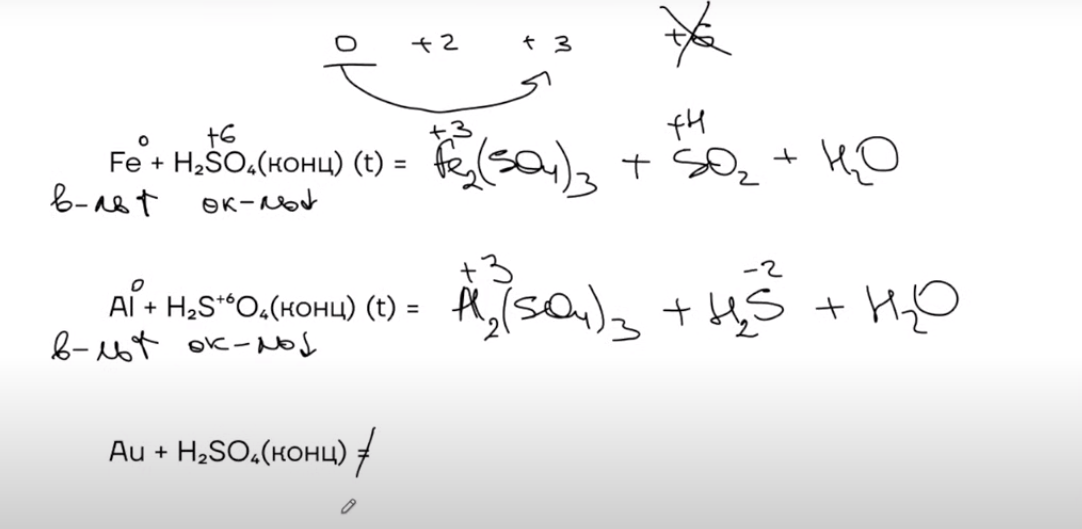 0 +2 +3 +6
0 +6 +3 +4
Fe + H₂SO₄(конц) (t) = Fe₂(SO₄)₃ + SO₂ + H₂O
в-ль↑ ок-ль↓
0 +3 -2
Al + H₂S⁺⁶O₄(конц) (t) = Al₂(SO₄)₃ + H₂S + H₂O
в-ль↑ ок-ль↓
Au + H₂SO₄(конц) ≠